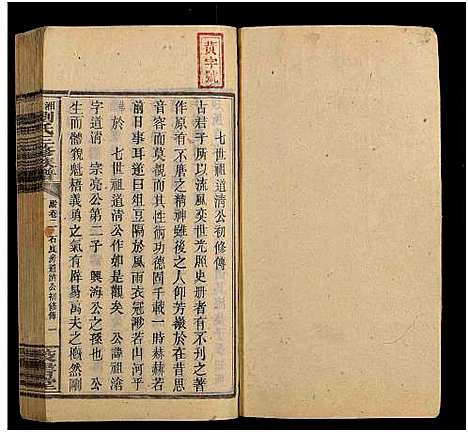 黄字號
七世祖道清公初修傳
古君子所以流風奕世光照史册者有不刊之著
作原有不磨之精神雖後之人仰芳嚴於在昔思
音容而莫覿而其性術功德固千載一時赫赫若
前日事耳逆曰俎豆隔於風雨衣冠渺若山河乎
於 七世祖道清公作如是觀矣 公諱祖滄
字道清 宗亮公第二子 興海公之孫也 公
生而體貌魁梧義勇之氣有辟易萬夫之慨然剛
湘 劉氏三修族譜
卷二 石庭房道清公初修傳 一